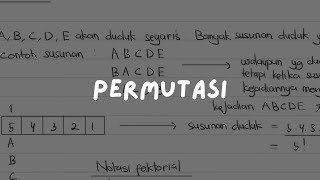 A, B, C, D, E akan duduk segaris. Banyak susunan duduk
contoh susunan : A B C D E → walaupun yg
B A C D E tetapi ketika
kejadiannya
PERMUTASI
kejadian ABCDE
1
5 4 3 2 1 → susunan duduk = 5.4.3
A = 5!
B
C Notasi faktorial